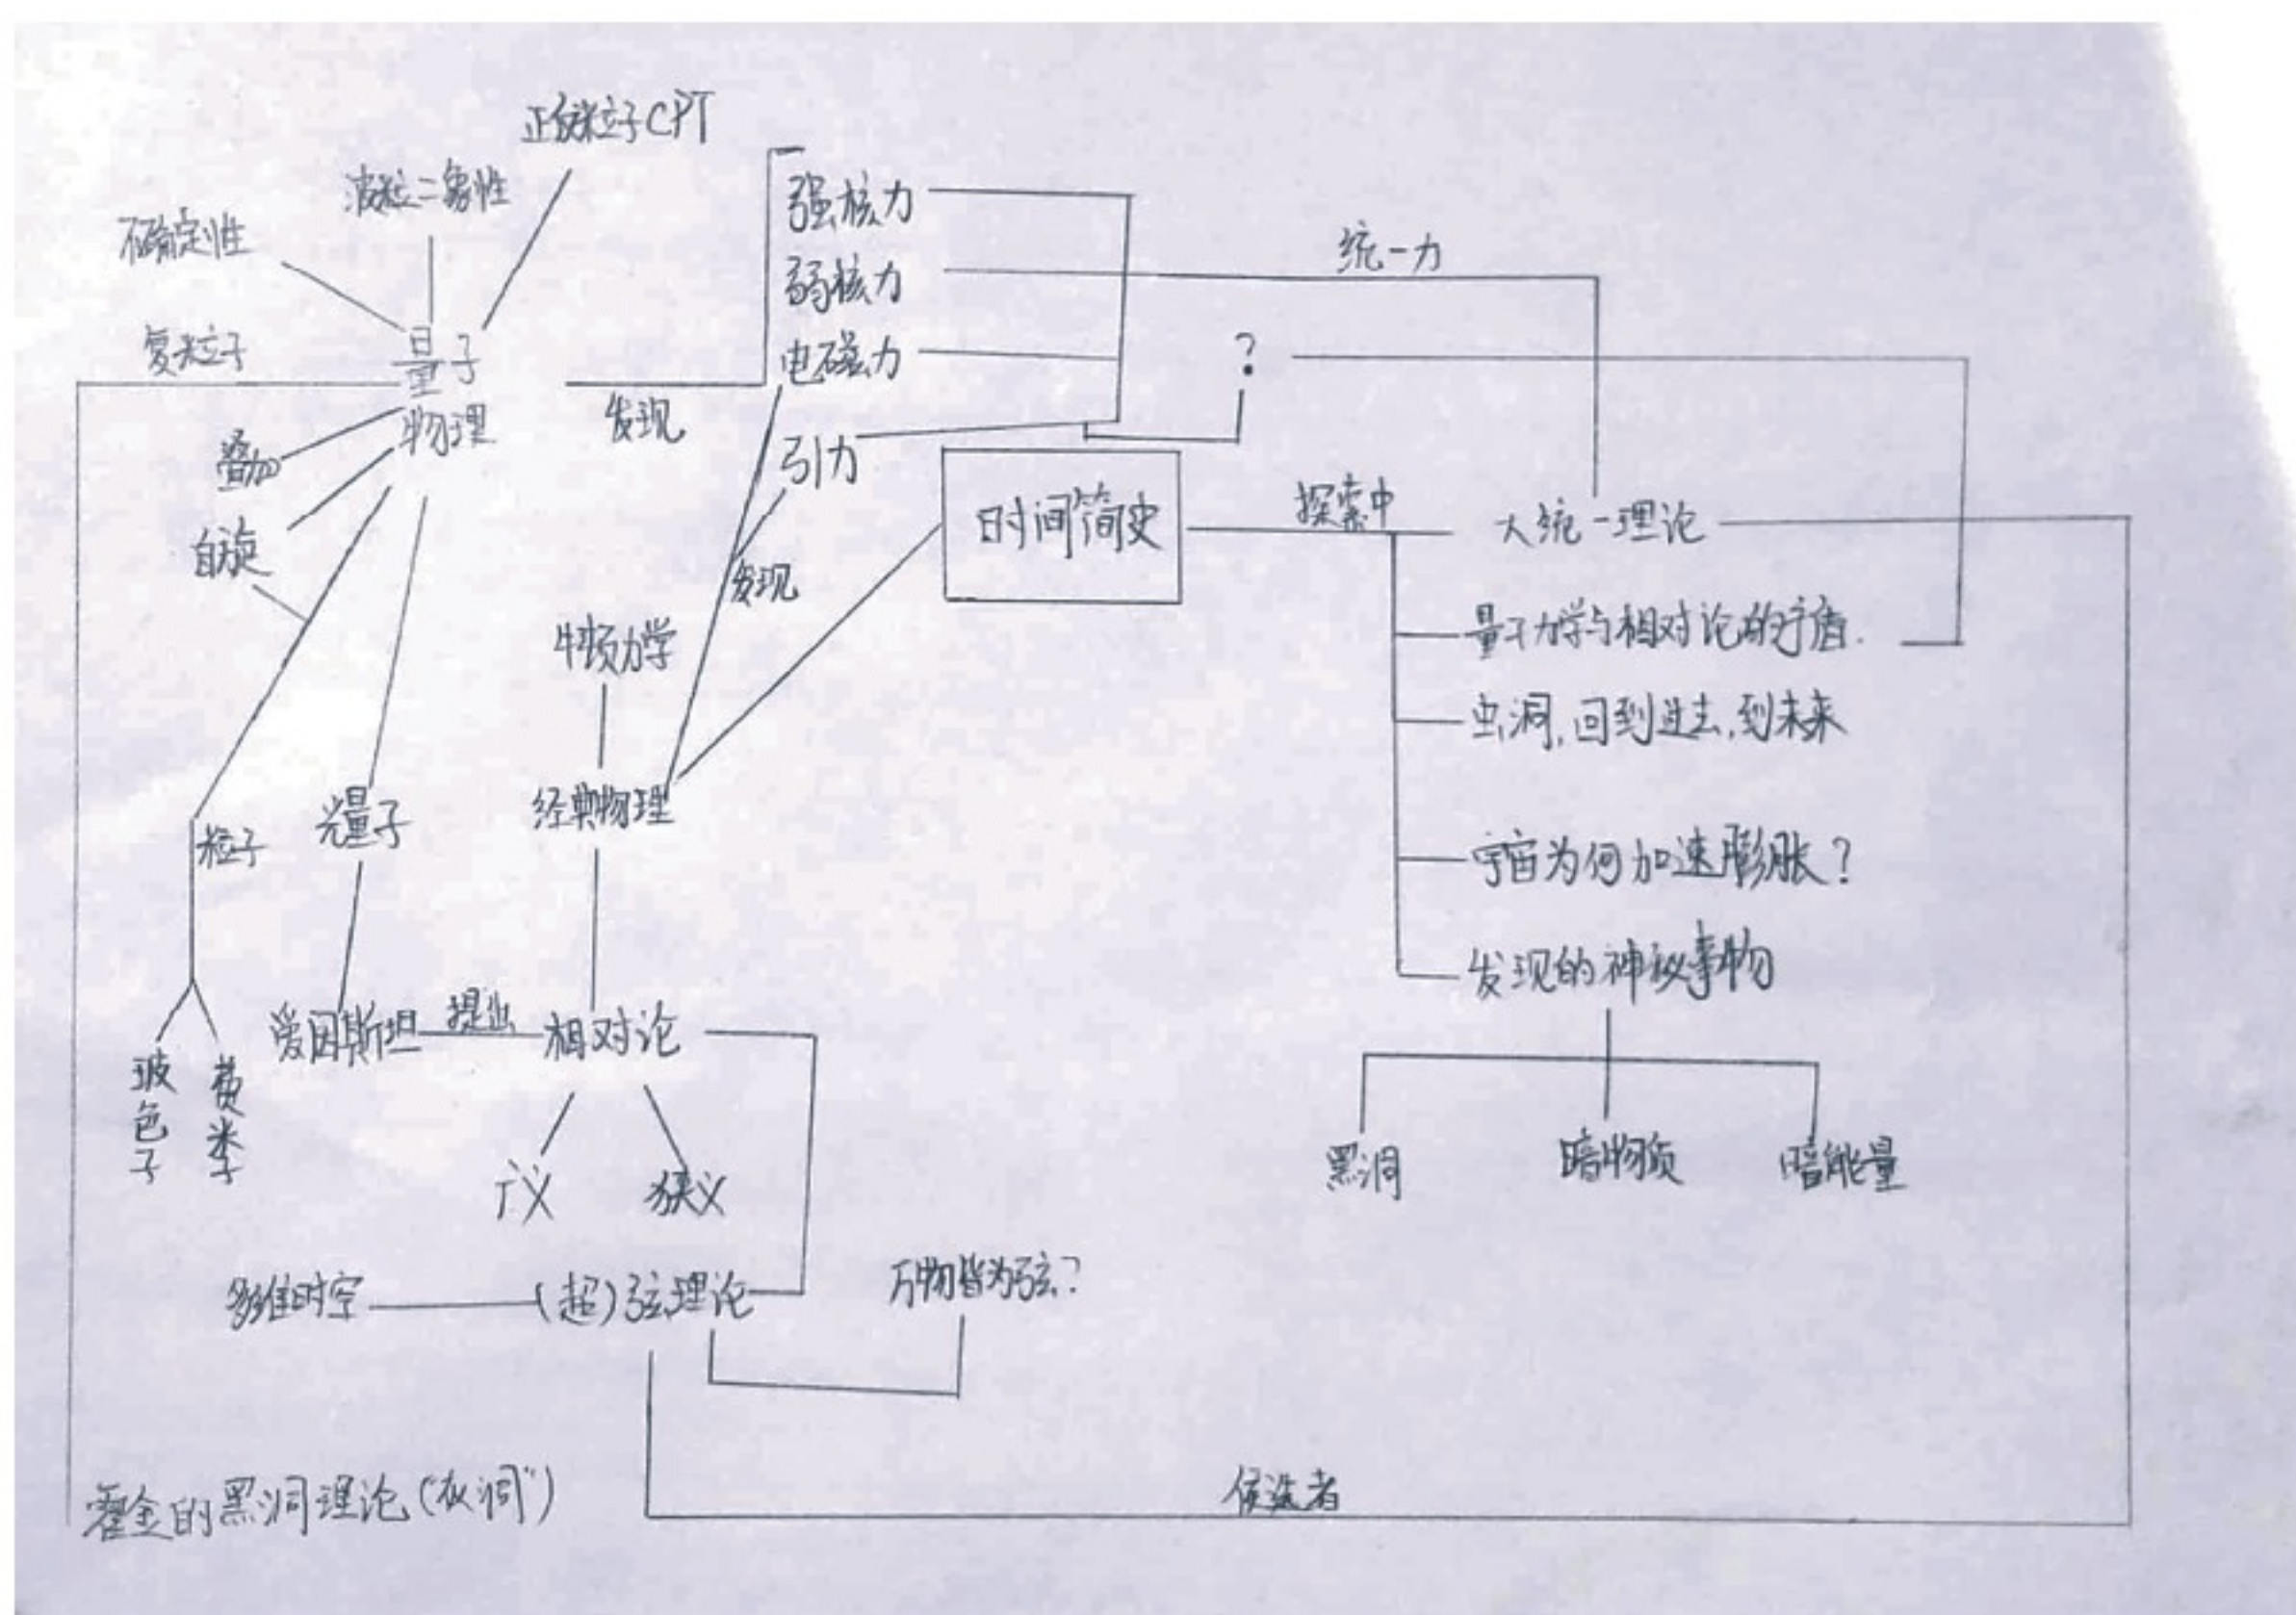 正反粒子CPT
波粒二象性
不确定性
复粒子
量子
物理
叠加
自旋
发现
强核力
弱核力
电磁力
引力
统一力
?
日时间简史
探索中
大统一理论
量子力学与相对论的矛盾.
虫洞,回到过去,到未来
宇宙为何加速膨胀?
发现的神秘事物
黑洞
暗物质
暗能量
发现
牛顿力学
经典物理
粒子
光量子
玻色子
费米子
爱因斯坦
提出
相对论
广义
狭义
多维时空
(超)弦理论
万物皆为弦?
霍金的黑洞理论("灰洞")
候选者